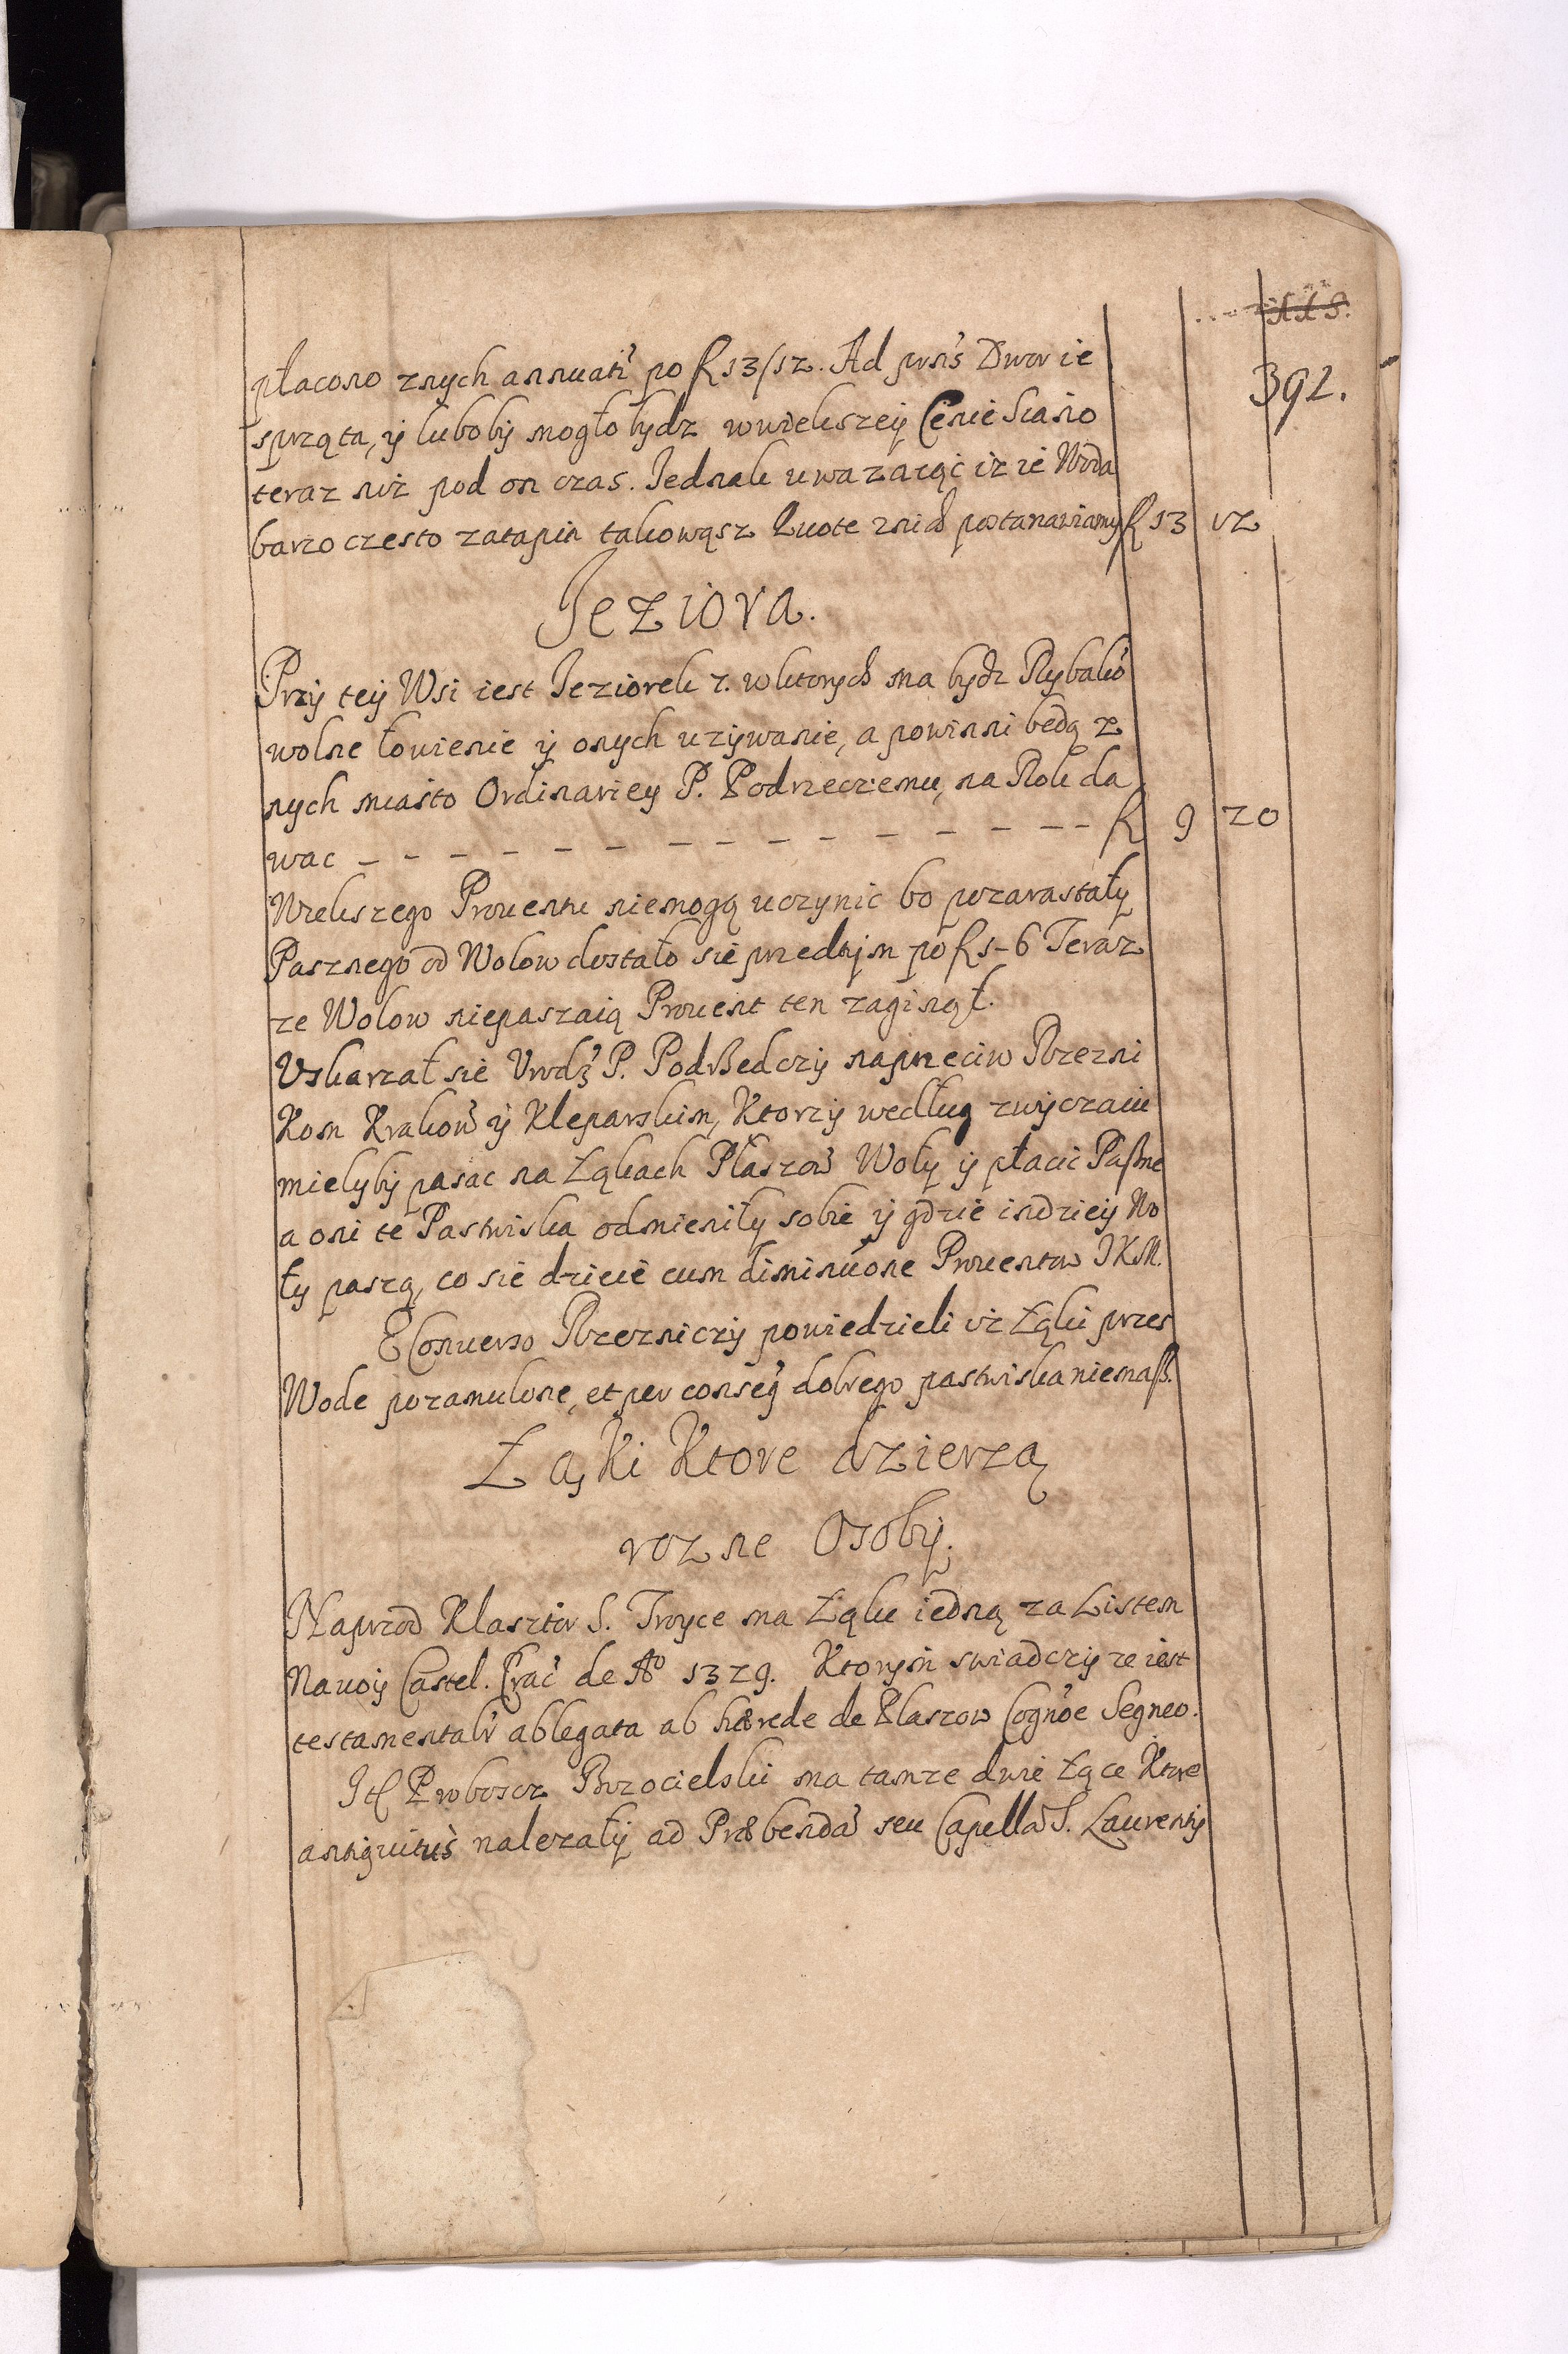 392.
płacono znych annuatĩ po f 13/12. Ad prns Dwor ie
sprząta, ÿ lubobÿ mogło bydz wwiekszeÿ Cenie Siano
teraz niż pod on czas. Jednak uwazaiąc iz ie Woda
barzo czesto zatapia takowąsz Quote znich postanawiamÿ f 13 12
Jeziora.
Przÿ teÿ Wsi iest Jeziorek 7. wktorych ma bydz Rybakõ
wolne łowienie ÿ onych uzÿwanie, a powinni bedą z
nych miasto Ordinarieÿ P. Podrzeczemu, na Rok da
wac – – – – – – – – – – – – – – f 9 20
Wiekszego Prouentu niemogą uczynic bo pozarastałÿ
Pasznego od Wolow dostało sie przedtÿm po f 1–6 Teraz
ze Wolow niepaszaią Prouent ten zaginął.
Uskarzał sie Urodz P. Podßedczÿ naprzeciw Rzezni
Kom Krakow ÿ Kleparskim, Ktorzÿ według zwÿczaiu
mielybÿ pasac na Łąkach Płaszow Wołÿ ÿ płacic Paßne
a oni te Pastwiska odmieniłÿ sobie ÿ gdzie indzieÿ Wo
łÿ paszą, co sie dzieie cum diminuõne Prouentow JKM.
E Conuerso Rzezniczÿ powiedzieli iż Łąki przes
Wode pozamulone, et per conseq dobrego pastwiska niemaß.
Łąki Ktore dzierzą
rozne Osobÿ.
Naprzod Klasztor S. Troyce ma Łąke iedną za Listem
Nauoÿ Castel. Crac de Ao 1329. Ktorÿm swiadczÿ ze iest
testamentalr ablegata ab hærede de Płaszow Cognõe Segneo.
Itl Proboscz Brzocielski ma tamze dwie Łące Ktore
antiquitus nalezałÿ ad Præbendã seu Capellã S. Laurentÿ